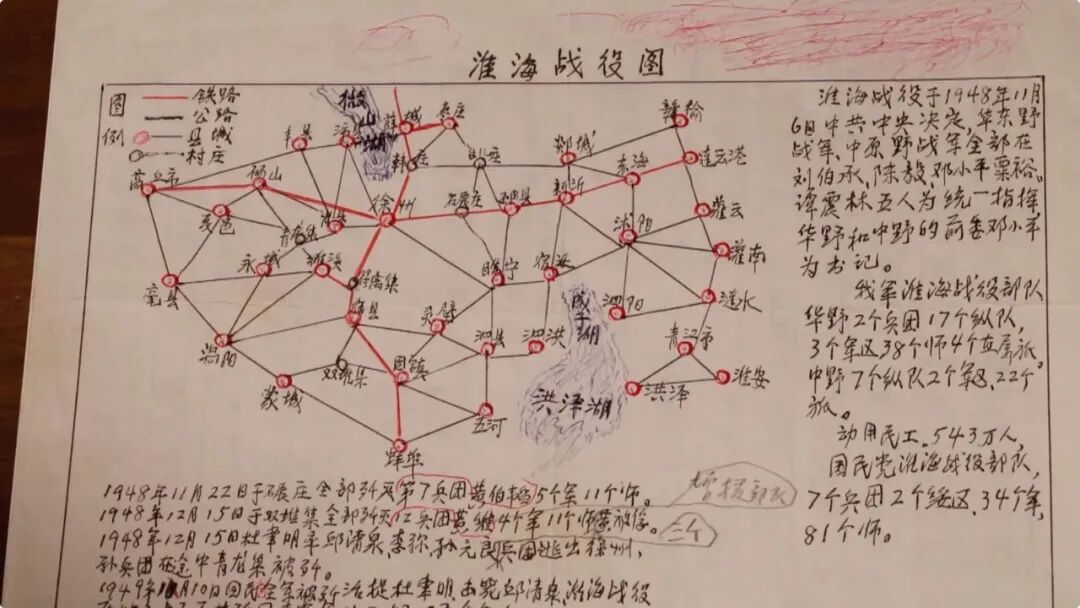 淮海战役图
图例
铁路
公路
县城
村庄
微山湖
薛城
枣庄
丰县
沛县
韩庄
郯城
赣榆
东海
连云港
商丘市
砀山
徐州
新沂
灌云
夏邑
青龙集
沭阳
灌南
永城
睢宁
宿迁
亳县
宿县
灵璧
泗阳
涟水
成子湖
涡阳
泗县
泗洪
清江市
双堆集
固镇
蒙城
洪泽湖
洪泽
淮安
五河
蚌埠
淮海战役于1948年11月
6日中共中央决定,华东野
战军,中原野战军全部在
刘伯承,陈毅,邓小平粟裕。
谭震林五人为统一指挥
华野和中野的前委邓小平
为书记。
我军淮海战役部队
华野2个兵团17个纵队,
3个军区38个师4个直属旅,
中野7个纵队2个军区,22个
旅。
动用民工,543万人,
国民党淮海战役部队,
7个兵团2个绥区,34个军,
81个师。
1948年11月22日于碾庄全部歼灭第7兵团黄伯韬5个军11个师。
增援部队
1948年12月15日于双堆集全部歼灭12兵团黄维4个军11个师
三个
1948年12月15日杜聿明率邱清泉,李弥,孙元良兵团逃出徐州,
孙兵团在途中青龙集被歼。
1949年1月10日国民全军被歼活捉杜聿明,击毙邱清泉,淮海战役